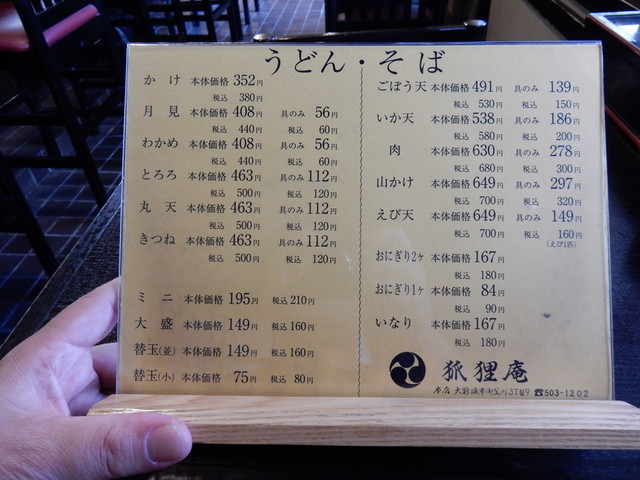 うどん・そば
かけ 本体価格 352円
税込 380円
月見 本体価格 408円 具のみ 56円
税込 440円 税込 60円
わかめ 本体価格 408円 具のみ 56円
税込 440円 税込 60円
とろろ 本体価格 463円 具のみ 112円
税込 500円 税込 120円
丸天 本体価格 463円 具のみ 112円
税込 500円 税込 120円
きつね 本体価格 463円 具のみ 112円
税込 500円 税込 120円
ミニ 本体価格 195円 税込 210円
大盛 本体価格 149円 税込 160円
替玉(並) 本体価格 149円 税込 160円
替玉(小) 本体価格 75円 税込 80円
ごぼう天 本体価格 491円 具のみ 139円
税込 530円 税込 150円
いか天 本体価格 538円 具のみ 186円
税込 580円 税込 200円
肉 本体価格 630円 具のみ 278円
税込 680円 税込 300円
山かけ 本体価格 649円 具のみ 297円
税込 700円 税込 320円
えび天 本体価格 649円 具のみ 149円
税込 700円 税込 160円
(えび1匹)
おにぎり2ヶ 本体価格 167円
税込 180円
おにぎり1ヶ 本体価格 84円
税込 90円
いなり 本体価格 167円
税込 180円
狐狸庵
本店 大野城市御笠川3丁目9 ☎503-1202